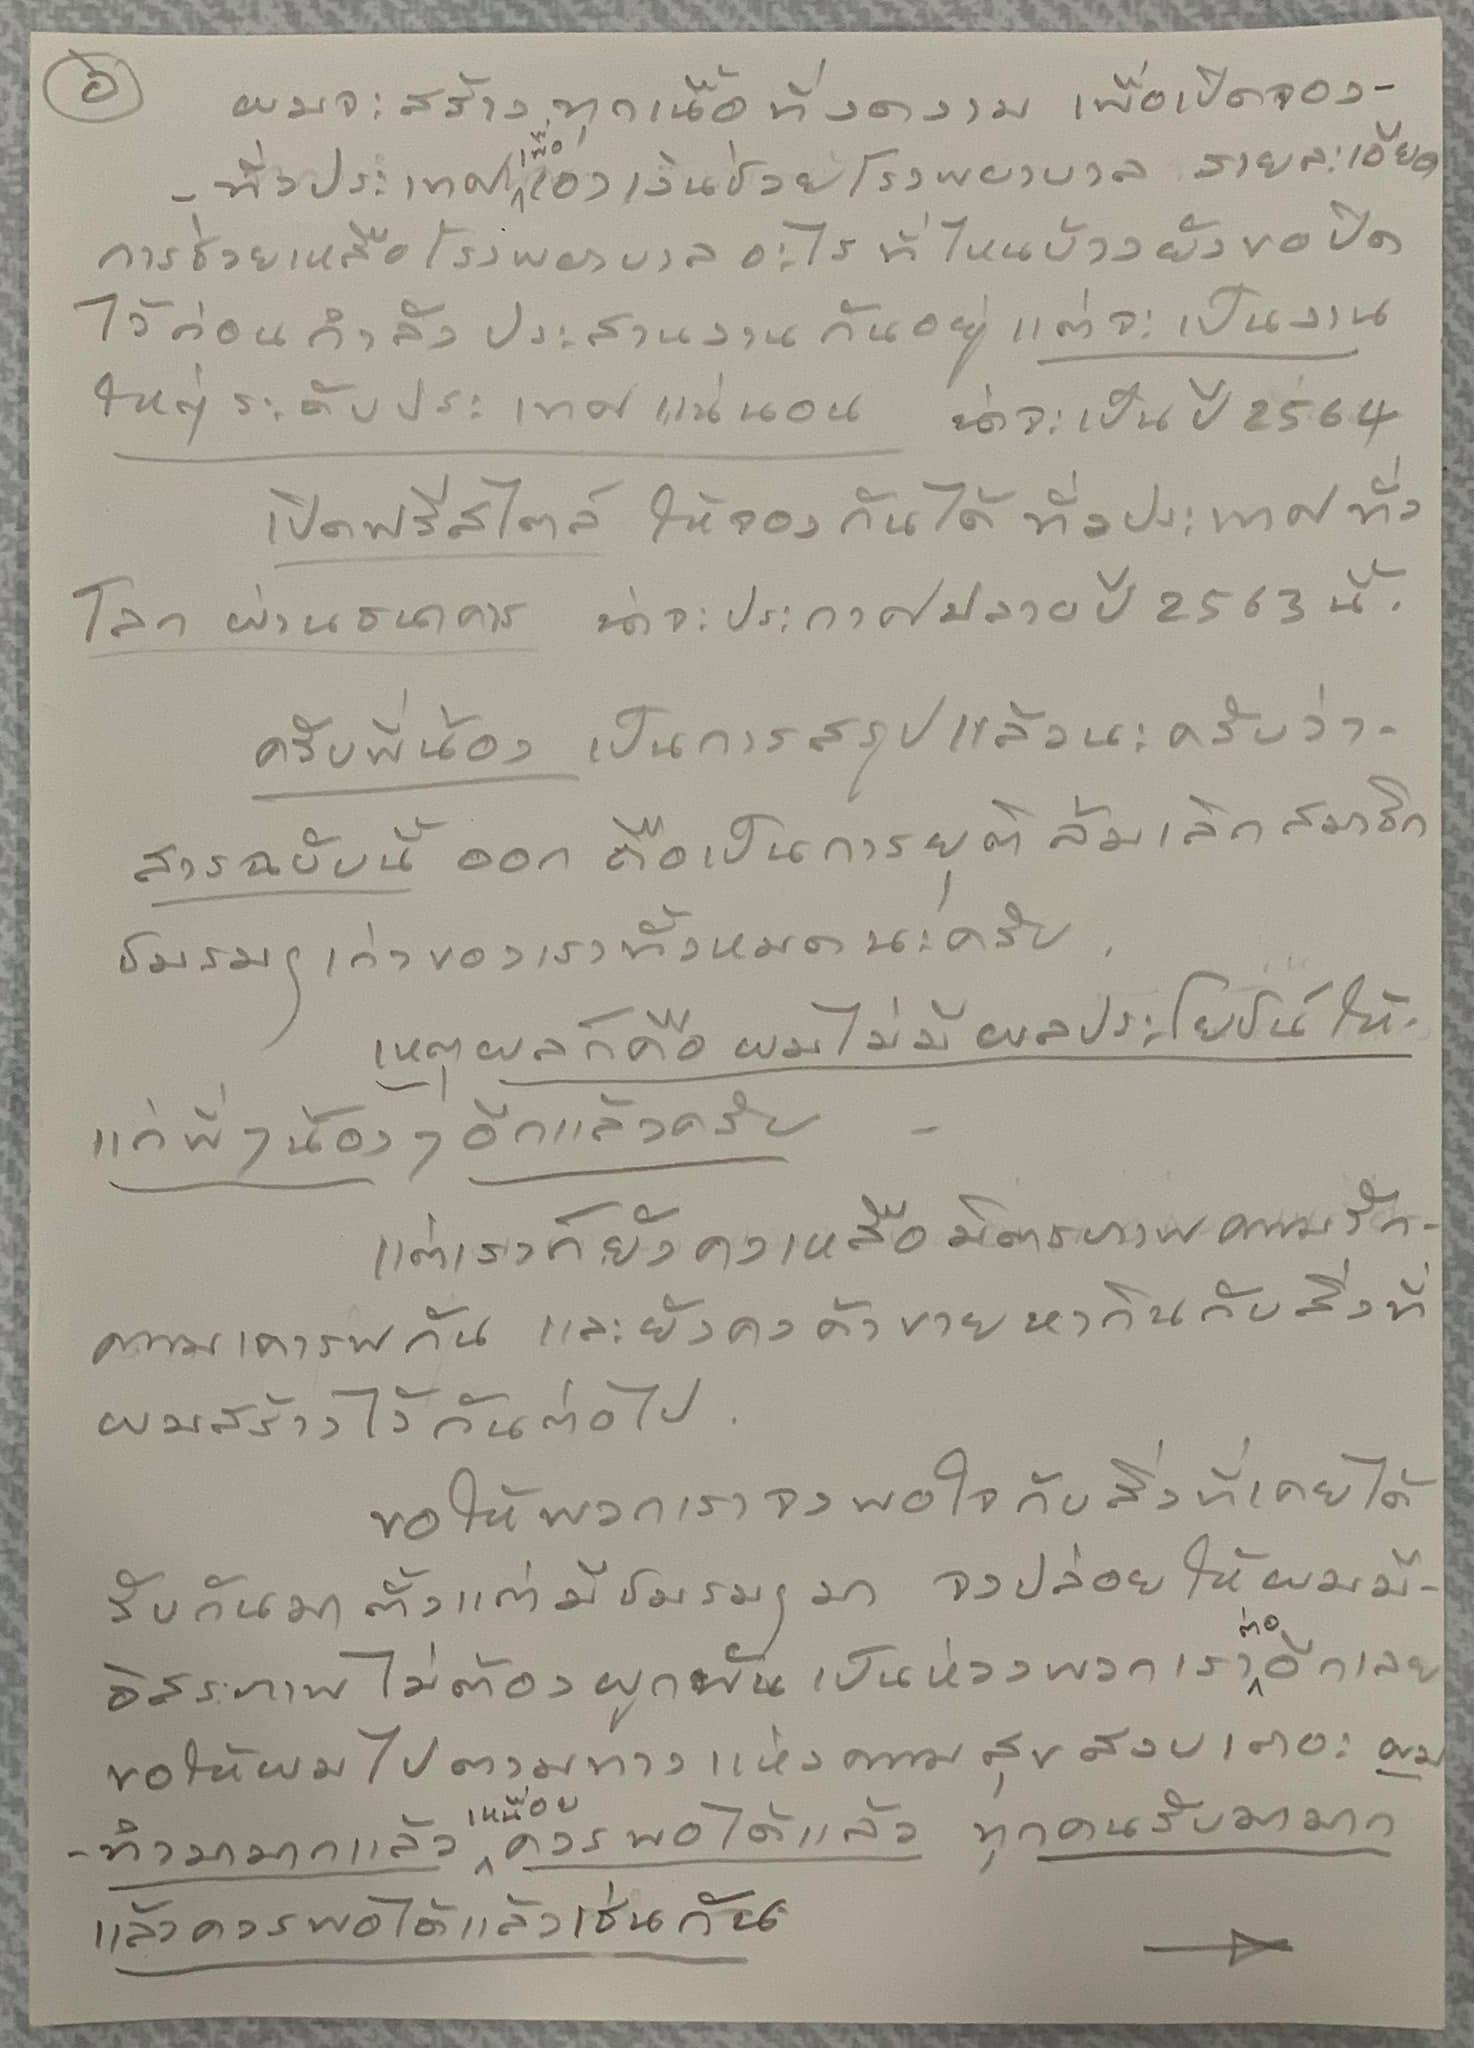 ๖
ผมจะสร้างทุกเนื้อที่งดงาม เพื่อเปิดจอง-
-ทั่วประเทศ เพื่อเอาเงินช่วยโรงพยาบาล รายละเอียด
การช่วยเหลือโรงพยาบาล อะไร ที่ไหนบ้างยังขอปิด
ไว้ก่อนกำลังประสานงานกันอยู่ แต่จะเป็นงาน
ใหญ่ระดับประเทศแน่นอน น่าจะเป็นปี 2564
เปิดฟรีสไตล์ ให้จองกันได้ทั่วประเทศทั่ว
โลก ผ่านธนาคาร น่าจะประกาศปลายปี 2563 นี้.
ครับพี่น้อง เป็นการสรุปแล้วนะครับว่า-
สารฉบับนี้ ออก ถือเป็นการยุติ ล้มเลิกสมาชิก
ชมรมฯเก่าของเราทั้งหมดนะครับ.
เหตุผลก็คือ ผมไม่มีผลประโยชน์ให้-
แก่พี่ๆน้องๆอีกแล้วครับ -
แต่เราก็ยังคงเหลือมิตรภาพความรัก-
ความเคารพกัน และยังคงค้าขายหากินกับสิ่งที่
ผมสร้างไว้กันต่อไป.
ขอให้พวกเราจงพอใจกับสิ่งที่เคยได้
รับกันมา ตั้งแต่มีชมรมฯมา จงปล่อยให้ผมมี-
อิสระภาพไม่ต้องผูกพันเป็นห่วงพวกเราต่ออีกเลย
ขอให้ผมไปตามทางแห่งความสุขสงบเถอะ ผม
-ทำมามากแล้ว เหนื่อย ควรพอได้แล้ว ทุกคนรับมามาก
แล้วควรพอได้แล้วเช่นกัน